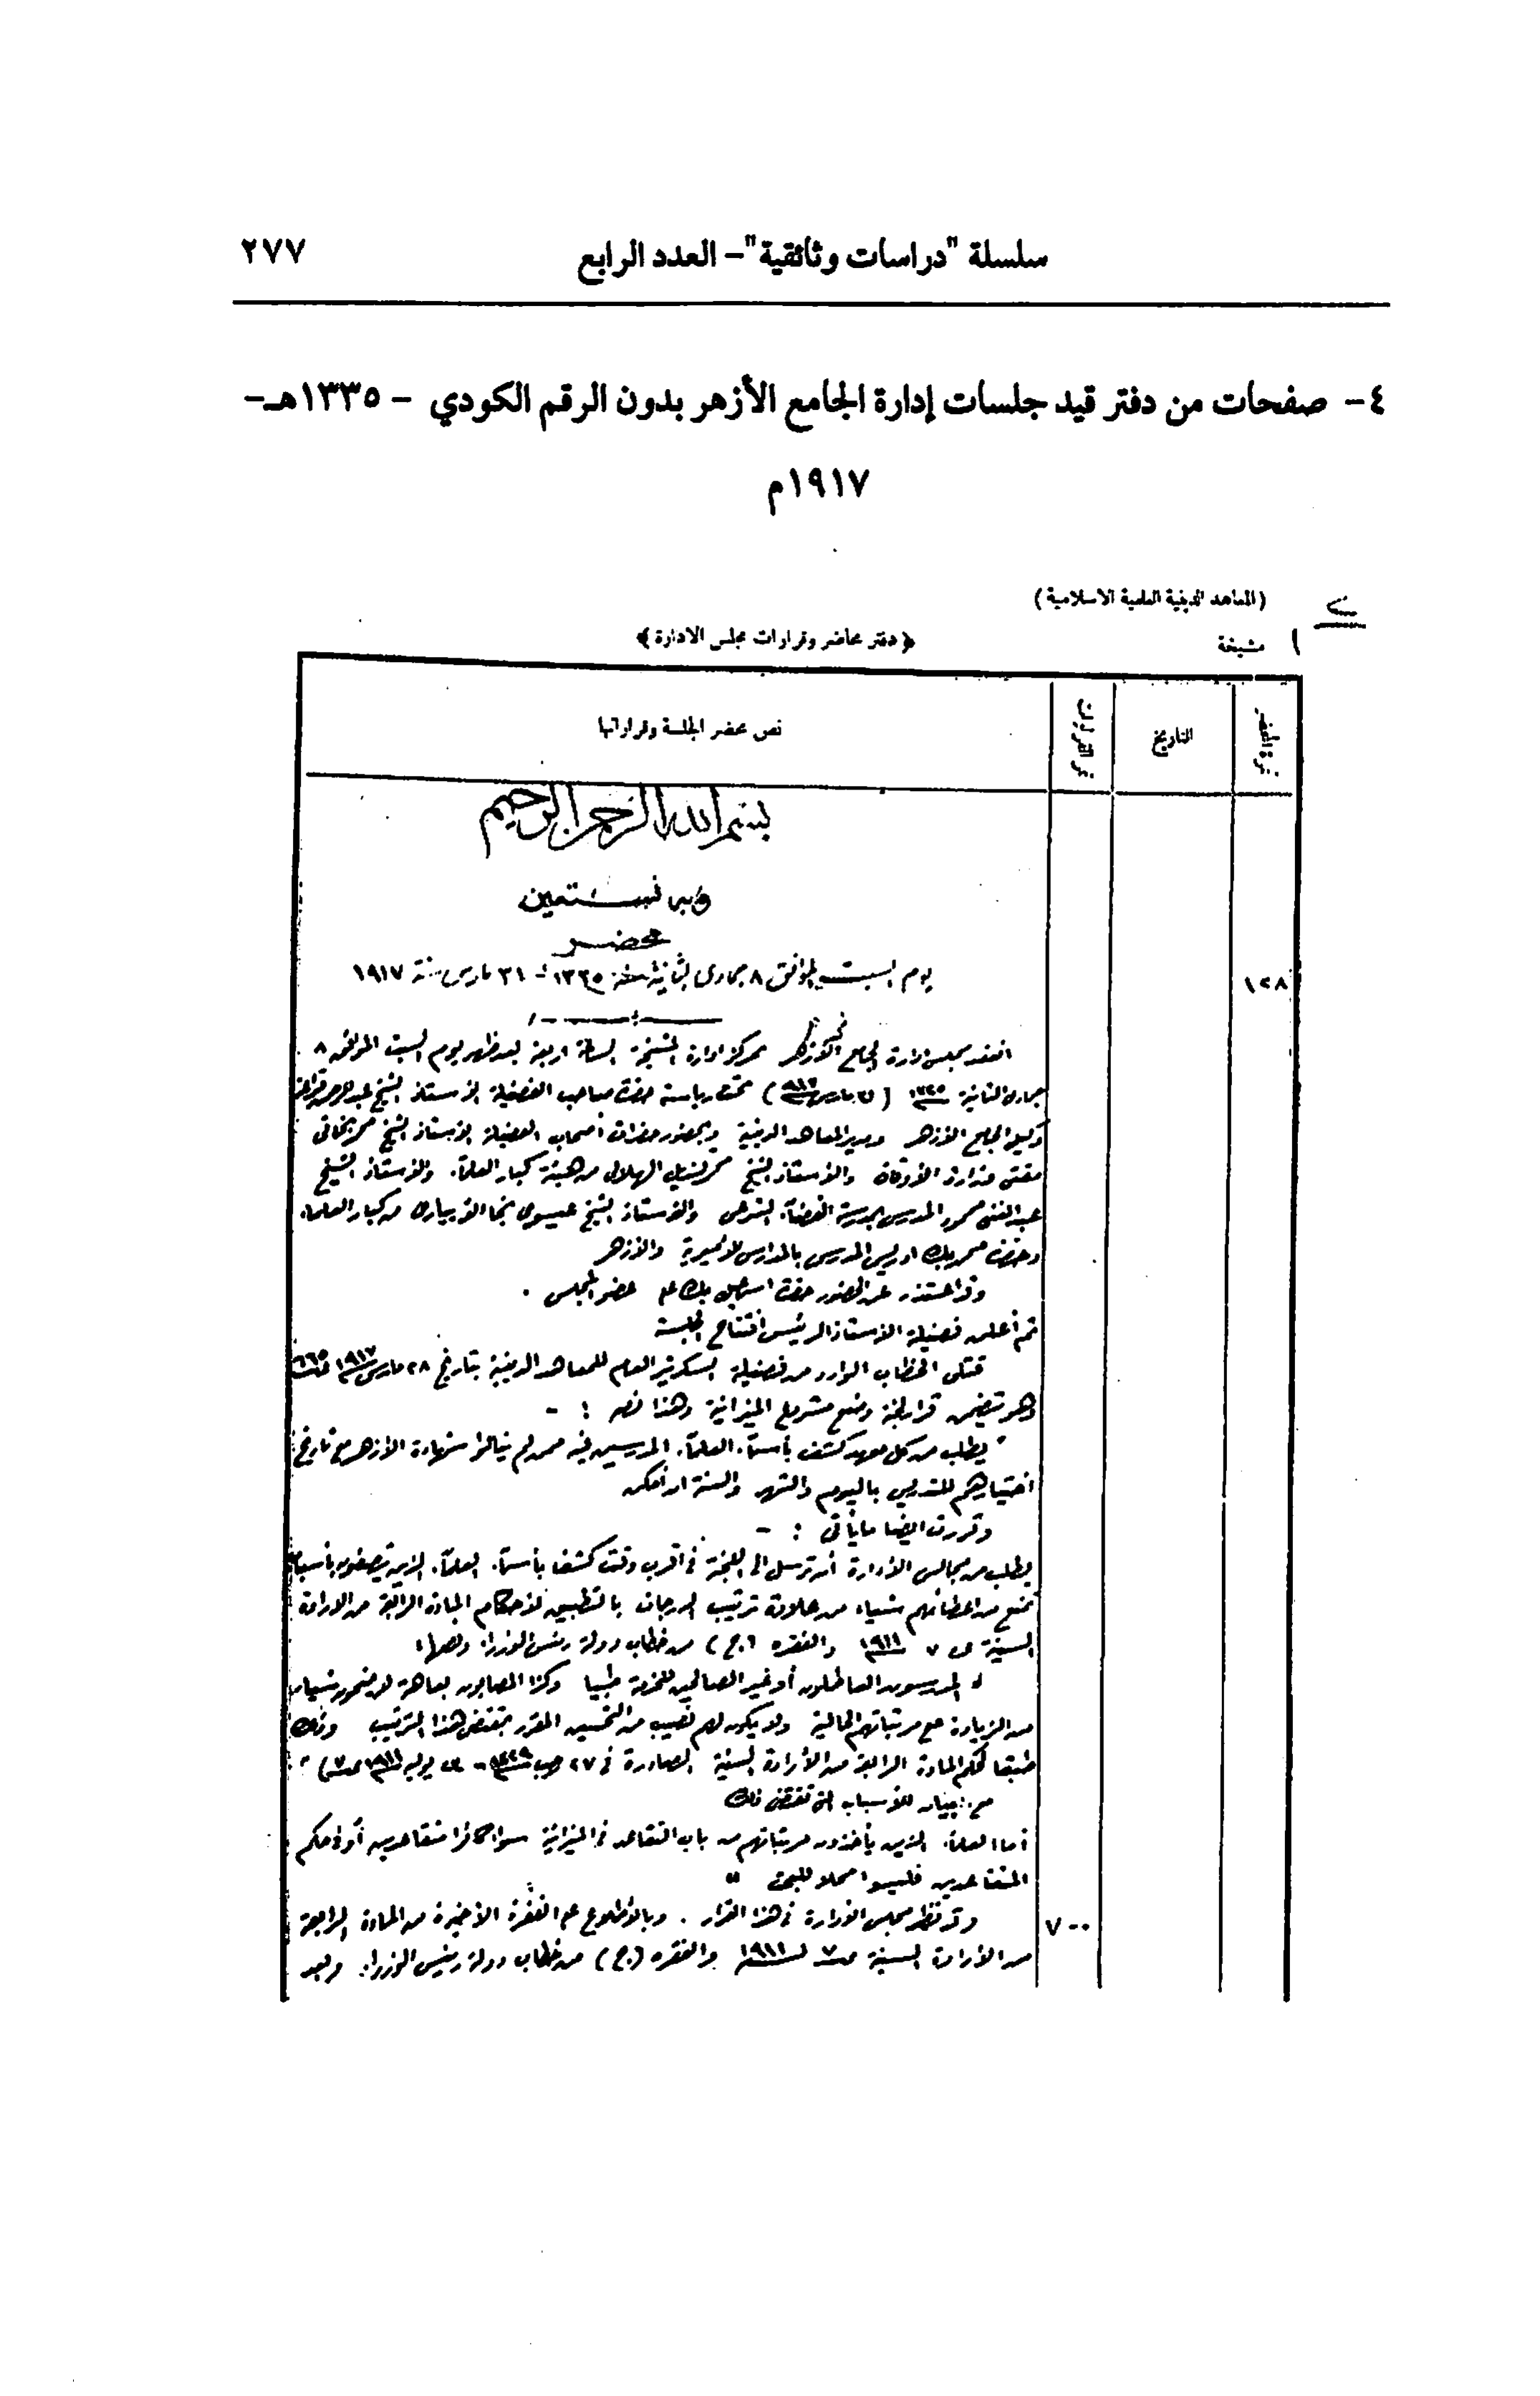 سلسلة "دراسات وثائقية" – العدد الرابع ٢٧٧
٤ – صفحات من دفتر قيد جلسات إدارة الجامع الأزهر بدون الرقم الكودي – ١٣٣٥هـ –
١٩١٧م
(المعاهد الدينية العلمية الاسلامية)
١ مشيخة
﴿ دفتر محاضر وقرارات مجلس الادارة ﴾
نمرة المحضر
التاريخ
نمر القرارات
نص محضر الجلسة وقراراتها
بسم الله الرحمن الرحيم
وبه نستعين
محضر
١٢٨
يوم السبت الموافق ٨ جمادى الثانية سنة ١٣٣٥ - ٣١ مارس سنة ١٩١٧
انعقد مجلس ادارة الجامع الازهر بمركز ادارة المشيخة الساعة اربعة بعد ظهر يوم السبت الموافق ٨
جمادى الثانية ١٣٣٥ (٣١ مارس ١٩١٧) تحت رياسة حضرة صاحب الفضيلة الاستاذ الشيخ عبد الرحمن قراعة
وكيل الجامع الازهر ومدير المعاهد الدينية وبحضور حضرات أصحاب الفضيلة الاستاذ الشيخ محمد بخاتى
مفتى وزارة الاوقاف والاستاذ الشيخ محمد الهلالى من هيئة كبار العلماء والاستاذ الشيخ
عبد الغنى محمود المدرس بمدرسة القضاء الشرعى والاستاذ الشيخ عيسوى نجا الابيارى من كبار العلماء
وحضرة محمد بك ادريس المدرس بالمدارس الاميرية والازهر
وقد اعتذر عن الحضور حضرة اسماعيل بك عضو المجلس .
ثم أعلن فضيلة الاستاذ الرئيس افتتاح الجلسة
فتلى الخطاب الوارد من فضيلة السكرتير العام للمعاهد الدينية بتاريخ ٢٨ مارس ١٩١٧
وهو يتضمن قرار لجنة وضع مشروع الميزانية وهذا نصه : -
" يطلب من كل معهد كشف بأسماء العلماء المدرسين فيه ممن لم ينالوا شهادة الازهر مع تاريخ
اختيارهم للتدريس باليوم والشهر والسنة ان أمكن
وقررت ايضا ما يأتى : -
يطلب من مجالس الادارة أن ترسل الى اللجنة فى أقرب وقت كشفا بأسماء العلماء الذين يتصفون بأسباب
تمنع من اعطائهم شيئا من علاوة ترتيب الدرجات بالتطبيق لاحكام المادة الرابعة من الارادة
السنية ٧ ١٩١١ والفقره (ج) من خطاب دولة رئيس الوزراء ونصها :
" المدرسون العاطلون أو غير الصالحين للخدمة طبيا وكذا المصابون بعاهة لا يمنحون شيئا
من الزيادة مع مرتباتهم الحالية ولا يكون لهم نصيب من التحسين المقرر بمقتضى هذا الترتيب وذلك
طبقا لحكم المادة الرابعة من الارادة السنية الصادرة فى ٢٧ رجب ١٣٢٩ - يوليه ١٩١١ "
مع بيان الاسباب التى تقتضى ذلك
أما العلماء الذين يأخذون مرتباتهم من باب التقاعد فى الميزانية سواء كانوا متقاعدين أو فى حكم
المتقاعدين فليسوا محلا للبحث "
٧٠٠
وقد نظر مجلس الادارة فى هذا القرار . وبالاطلاع على الفقرة الاخيرة من المادة الرابعة
من الارادة السنية ٧ لسنة ١٩١١ والفقره (ج) من خطاب دولة رئيس الوزراء وبعد